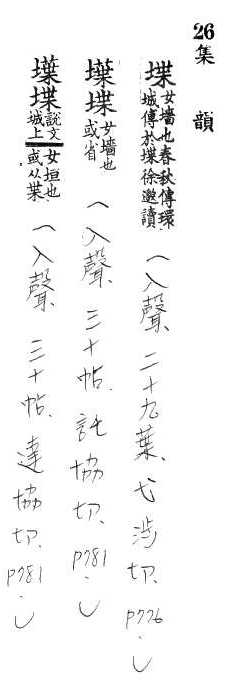 26 集 韻
堞 女墻也春秋傳環城傳於堞徐邈讀 (入聲、二十九葉、弋涉切、P776.)
㙪堞 女墻也或省 (入聲、三十帖、託協切、P781.)
㙪堞 說文城上女垣也或从枼 (入聲、三十帖、達協切、P781.)